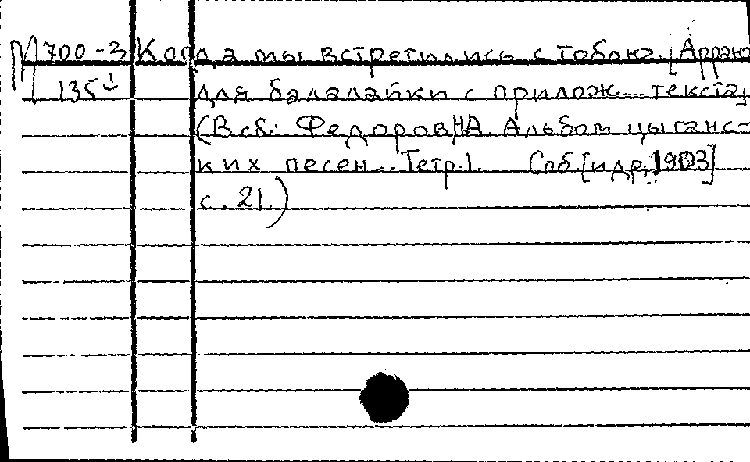 М 700-3 Когда мы встретились с тобою. [Арранж.
135 для балалайки с прилож. текста,
(В сб: Федоров, Н.А. Альбом цыганс-
ких песен. Тетр.1. Спб. [и др., 1903]
с. 21.)